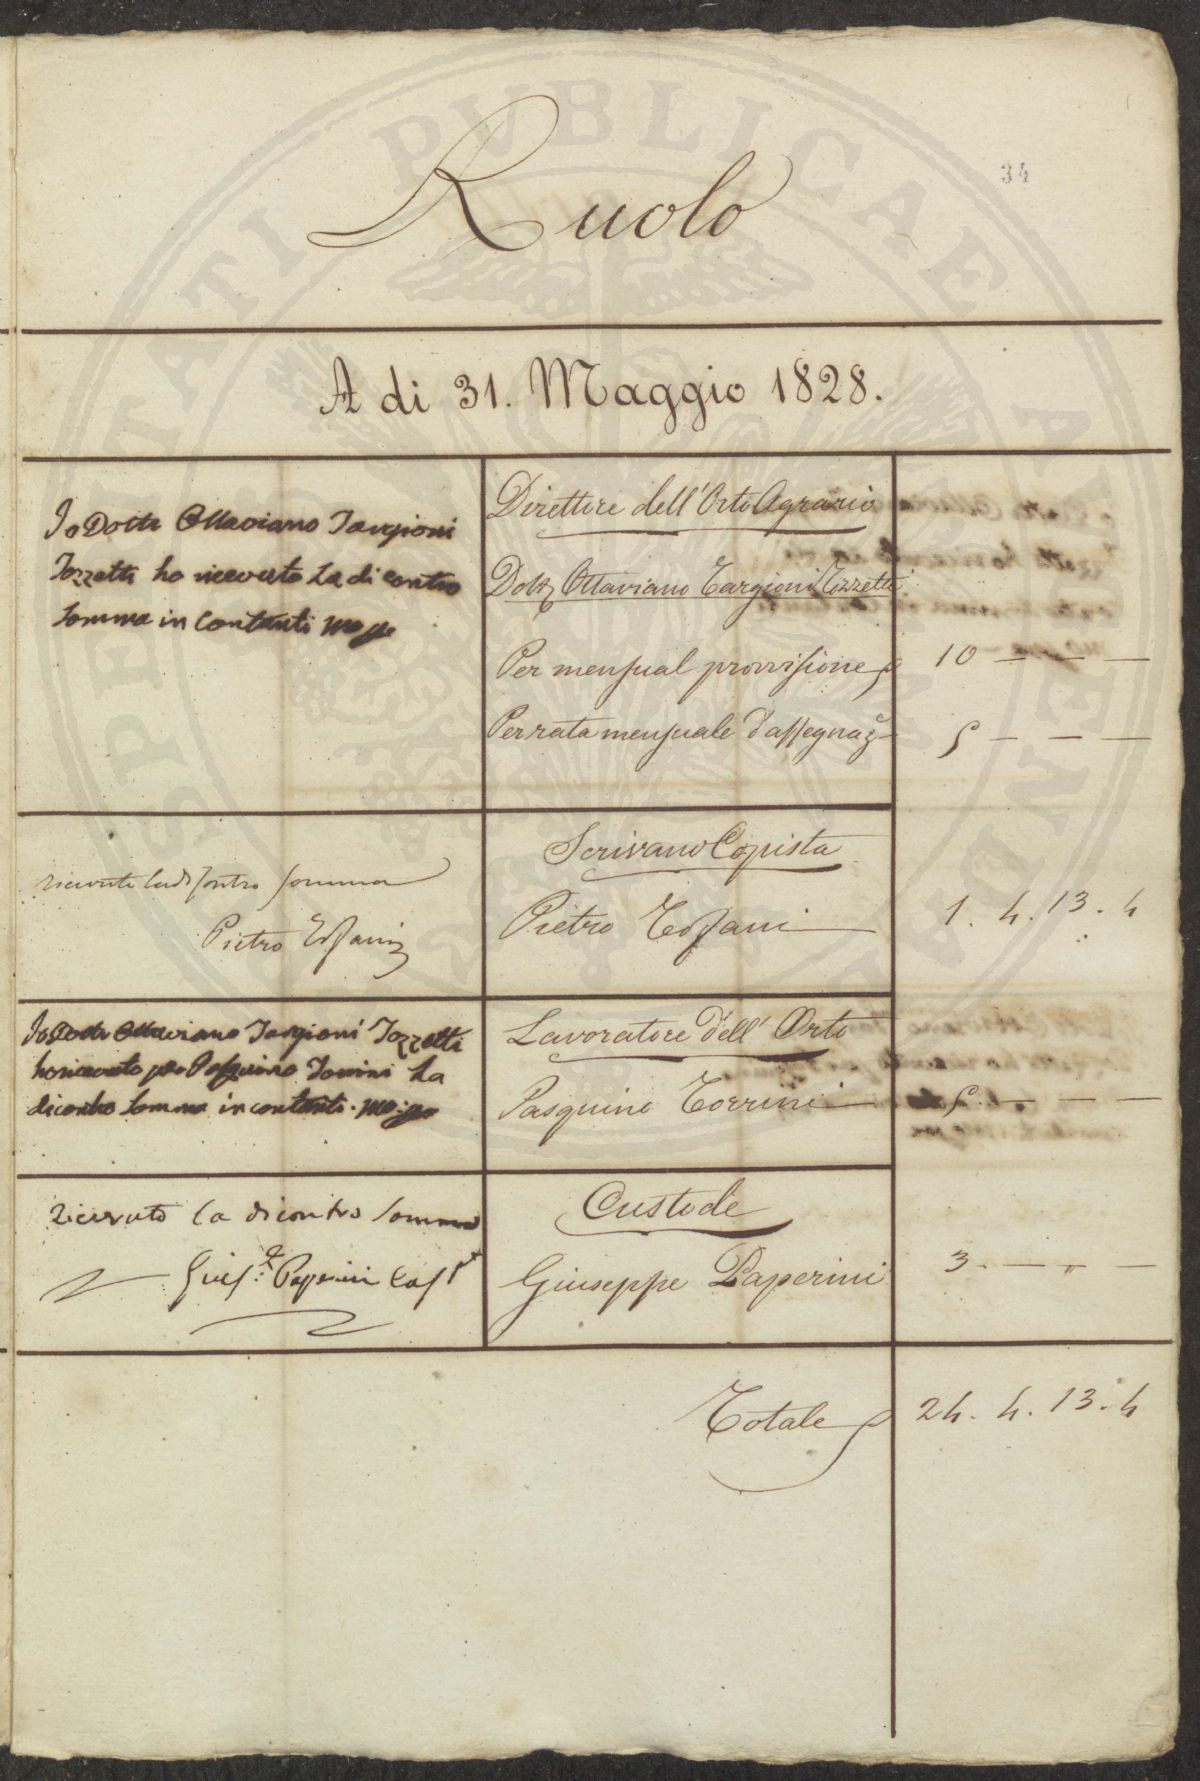 34
Ruolo
A di 31. Maggio 1828.
Io Dotte Ottaviano Targioni
Tozzetti ho ricevuto la di contro
Somma in Contanti mo po
Direttore dell'Orto Agrario
Dott Ottaviano Targioni Tozzetti
Per mensual provvisione 10 — — —
Per rata mensuale d'assegnaz 5 — — —
ricevuto la di Contro Somma
Pietro Tossani
Scrivano Copista
Pietro Tossani 1. 4. 13. 4
Io Dotte Ottaviano Targioni Tozzetti
ho ricevuto per Pasquino Torrini La
dicontro Somma in contanti. mo po
Lavoratore dell' Orto
Pasquino Torrini 5. — — —
Ricevuto la dicontro Somma
Gius.e Paperini
Custode
Giuseppe Paperini 3. — „ —
Totale 24. 4. 13. 4
SPECTATI PUBLICAE AT ENDE